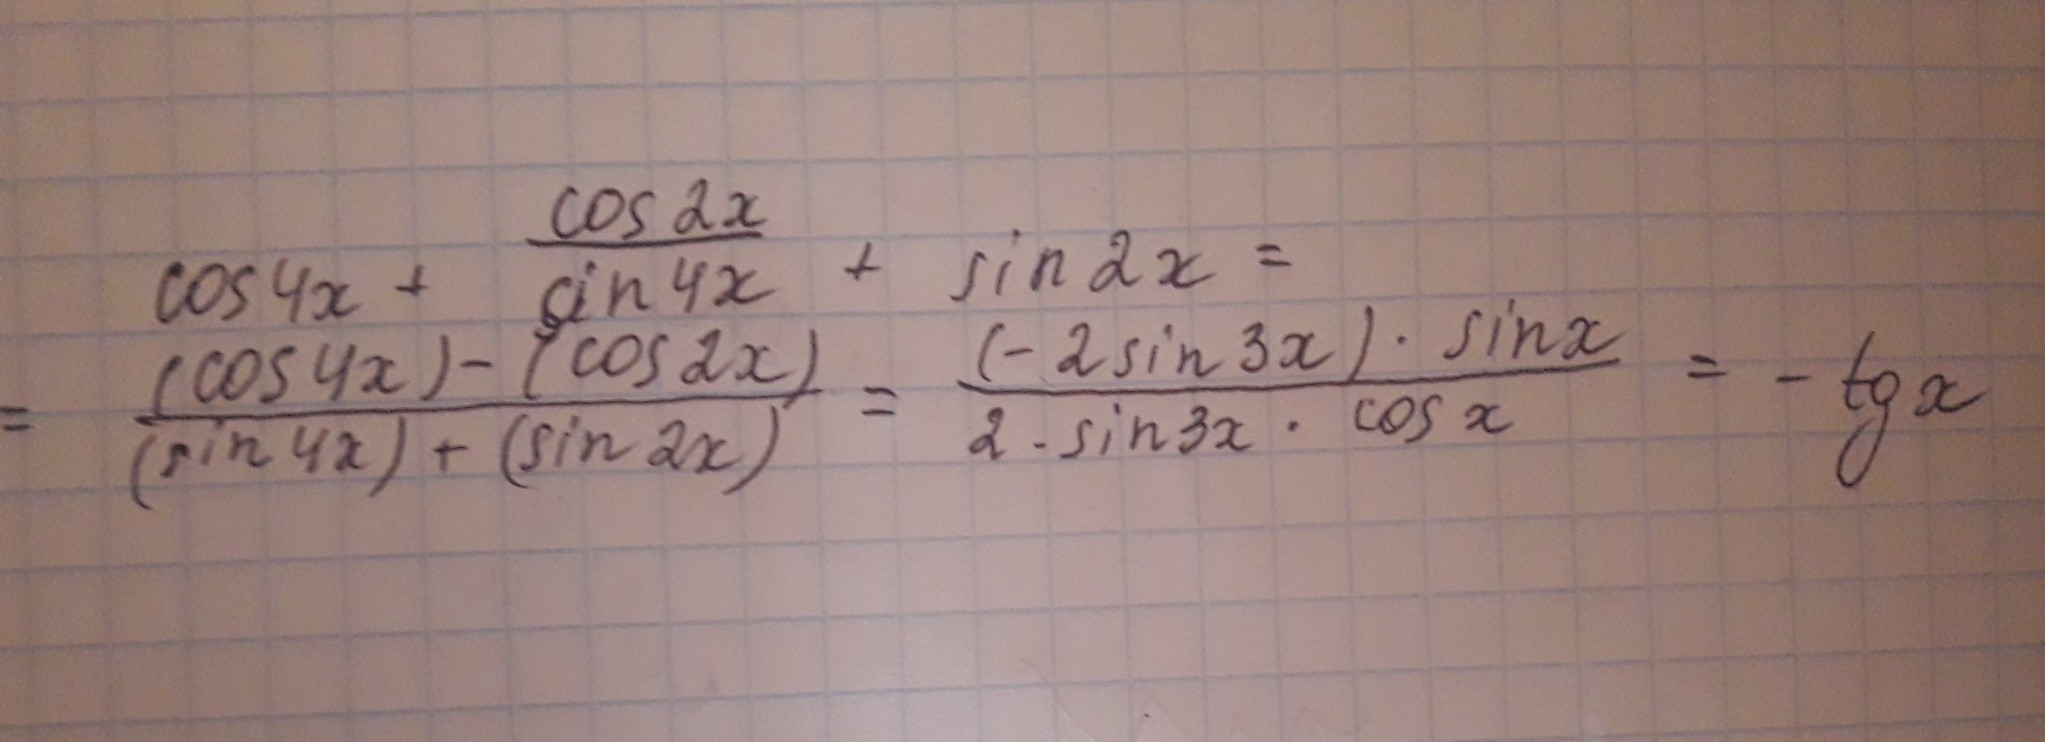 cos 4x + cos 2x / sin 4x + sin 2x =
= (cos 4x) - (cos 2x) / (sin 4x) + (sin 2x) = (- 2 sin 3x) · sin x / 2 · sin 3x · cos x = - tg x